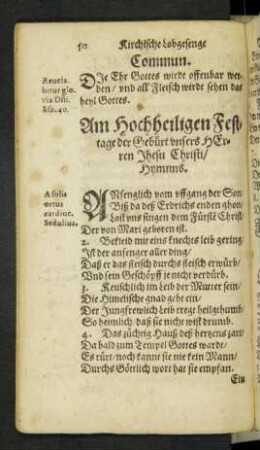 50 Kirchische Lobgesenge
Commun.
Reuela-
bitur glo-
ria Dñi.
Esa. 40.
DIe Ehr Gottes wirdt offenbar wer-
den/ vnd all Fleisch wirdt sehen das
heyl Gottes.
Am Hochheiligen Fest
tage der Gebürt vnsers HEr-
ren Jhesu Christi/
Hymnus.
A solis
ortus
cardine.
Sedulius.
ANfenglich vom vffgang der Son
Biß da deß Erdrichs enden ghon/
Last vns singen dem Fürst Christ
Der von Mari geboren ist.
2. Bekleid mit eins knechts leib gering
Ist der anfenger aller ding/
Daß er das fleisch durchs fleisch erwürb/
Vnd sein Geschöpff je nicht verdürb.
3. Keuschlich im Leib der Mutter sein/
Die Himelische gnad geht ein/
Der Jungfrewlich Leib trege heilgthumb
So heimlich/ daß sie nicht wist drumb.
4. Das züchtig Hauß deß hertzens zart/
Da bald zum Tempel Gottes wardt/
Es rürt/ noch kannt sie nie kein Mann/
Durchs Göttlich wort hat sie empfan.
Ein